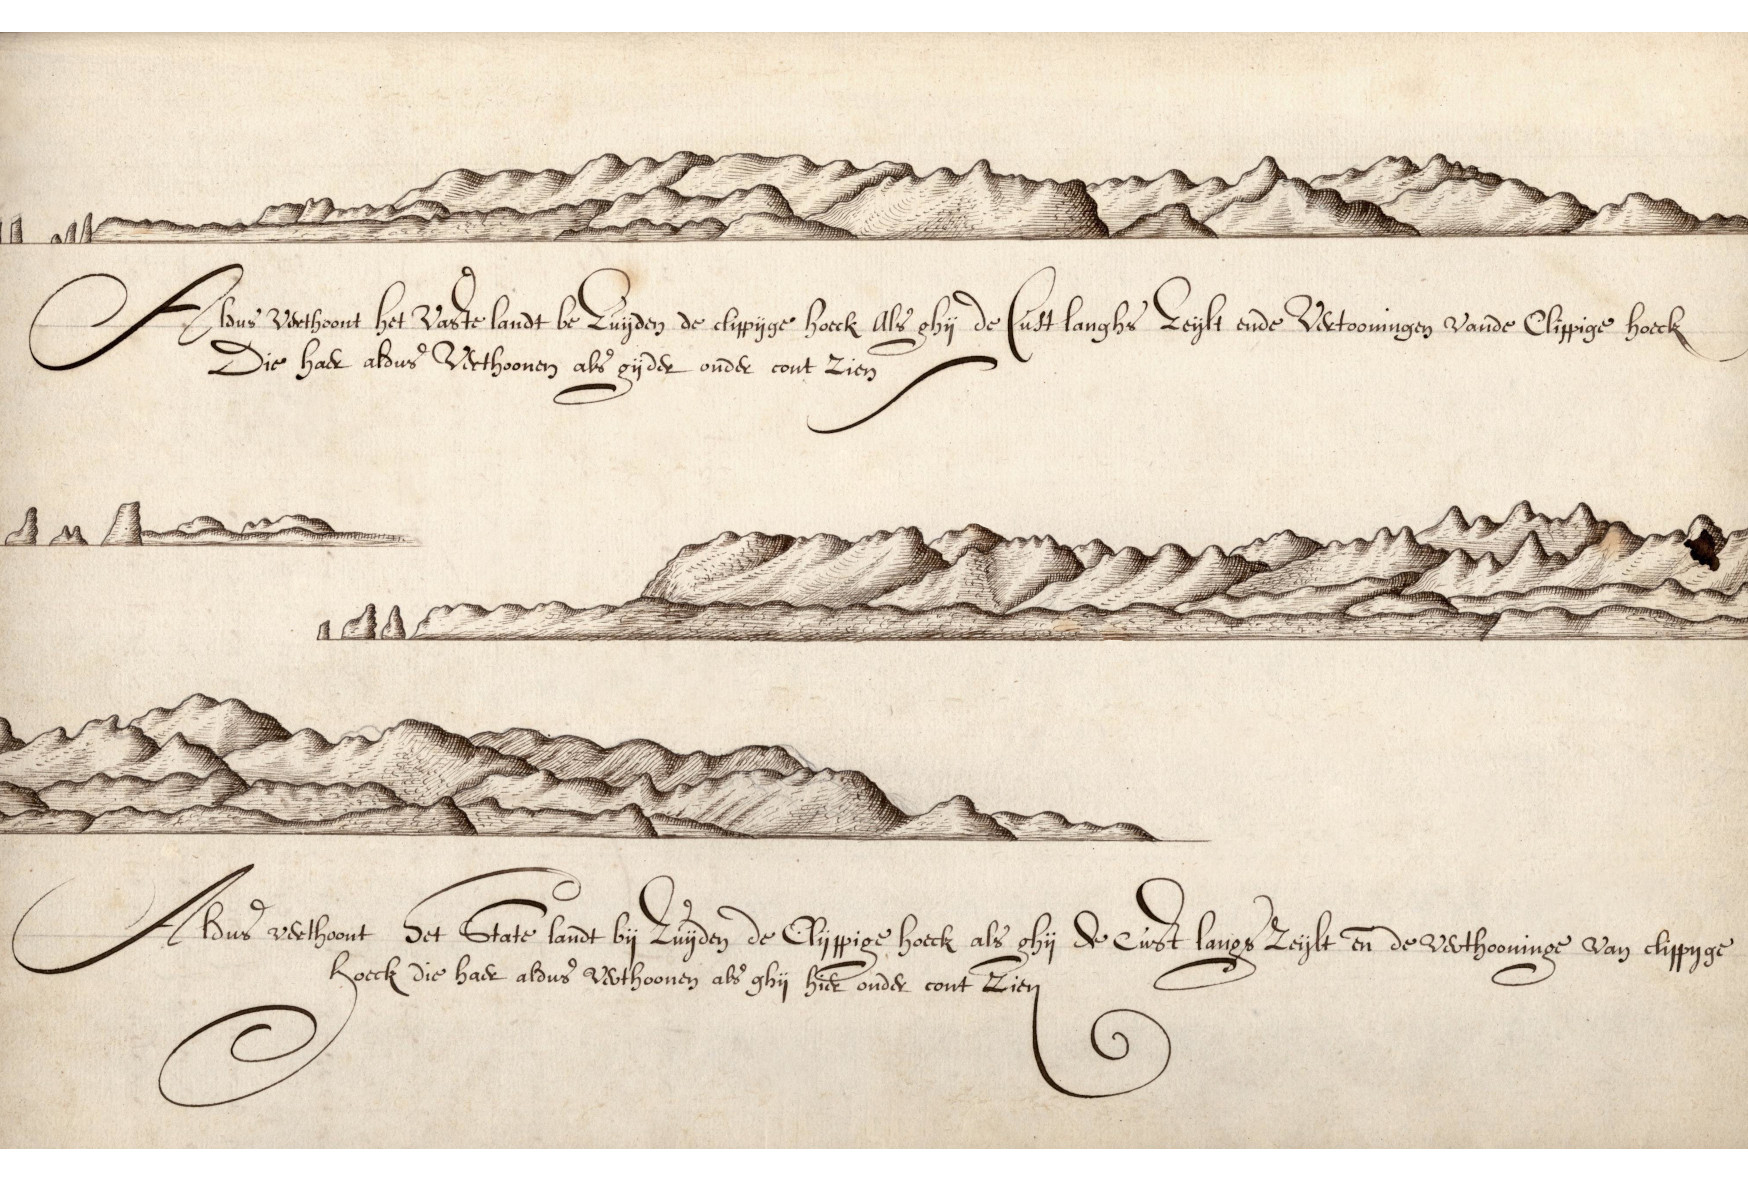 Aldus Verthoont het Vaste landt be Zuijden de clippijge hoeck Als ghij de Cust langhs Zeijlt ende Vertooningen vande Clippige hoeck
Die haer aldus Verthoonen als gijder onder cont Zien
Aldus verthoont Het State landt bij Zuijden de Clijppige hoeck als ghij de Cust langs Zeijlt en de verthooninge van clippijge
hoeck die haer aldus verthoonen als ghij hier onder cont Zien